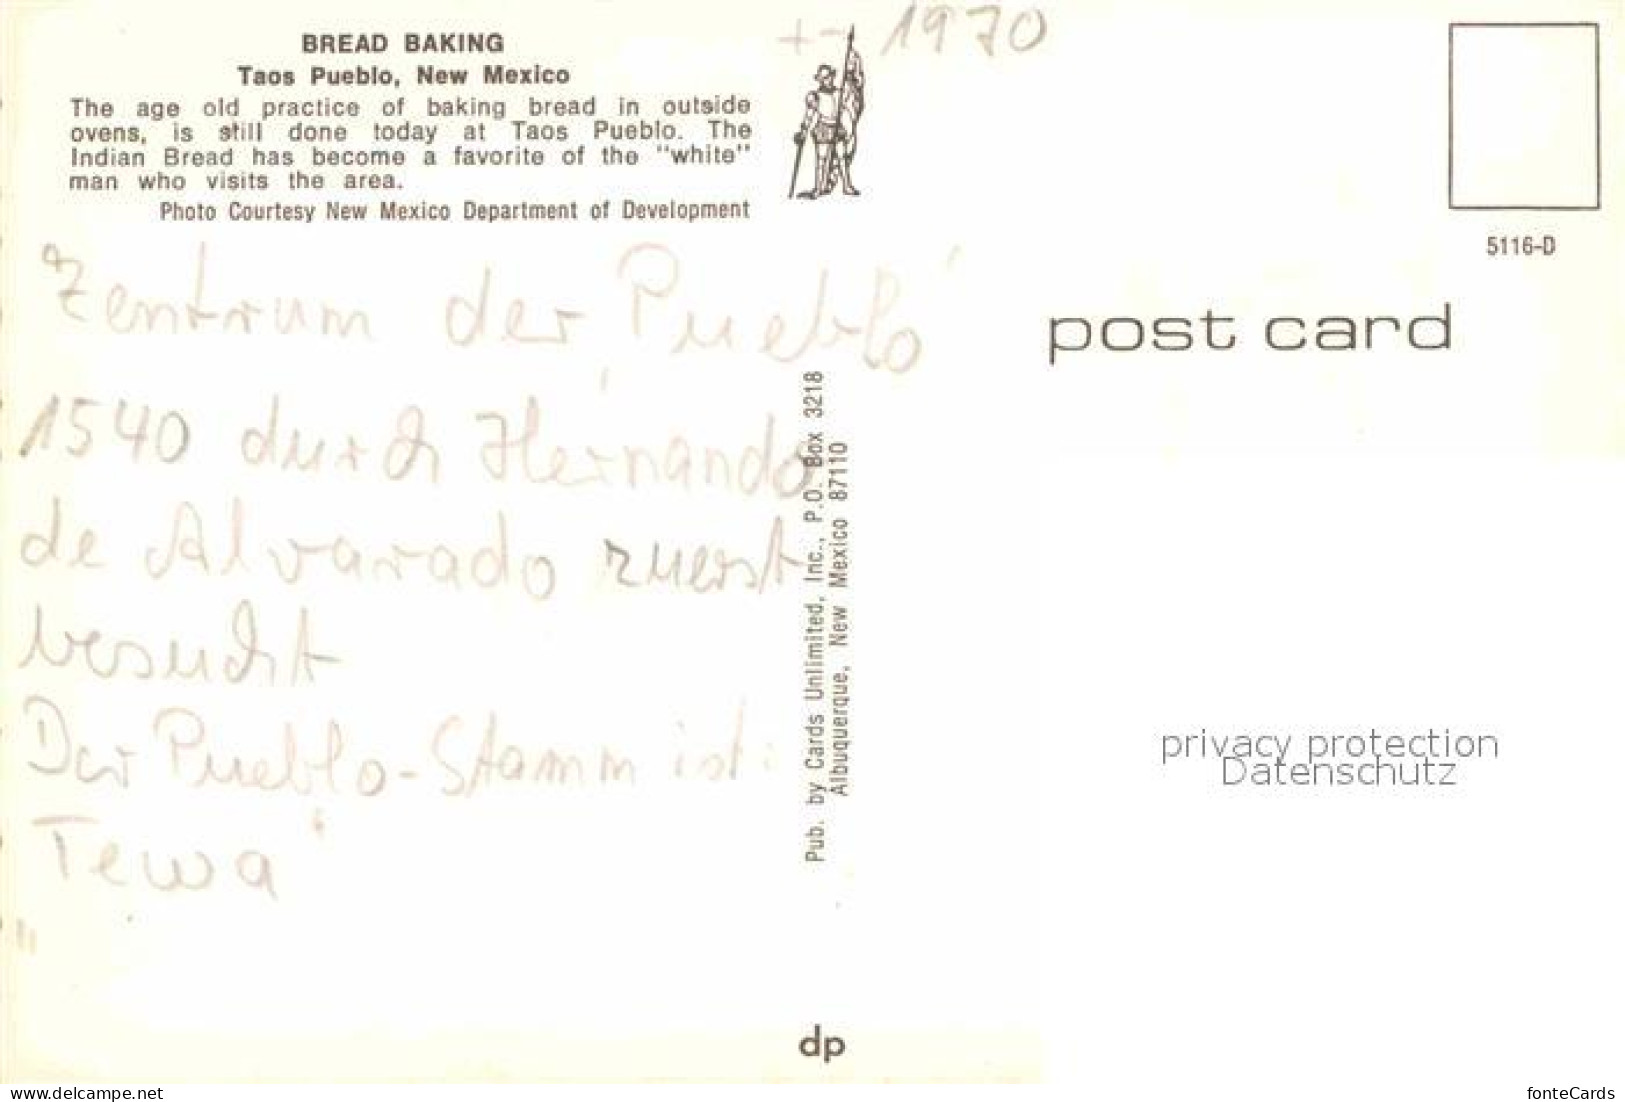 BREAD BAKING
Taos Pueblo, New Mexico
The age old practice of baking bread in outside
ovens, is still done today at Taos Pueblo. The
Indian Bread has become a favorite of the "white"
man who visits the area.
Photo Courtesy New Mexico Department of Development
+- 1970
5116-D
post card
Zentrum der Pueblo
1540 durch Hernando
de Alvarado zuerst
besucht
Der Pueblo-Stamm ist:
Tewa
Pub. by Cards Unlimited, Inc., P.O. Box 3218
Albuquerque, New Mexico 87110
privacy protection
Datenschutz
dp
the-best-of-cards.delcampe.net
fonteCards